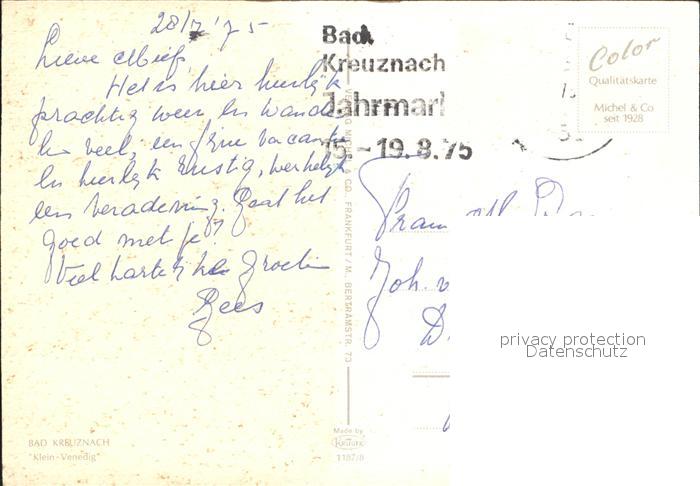 28/7 '75
Lieve Miep,
Het is hier heerlijk
prachtig weer, en wande-
len veel, een fijne vacantie
en heerlijk rustig, werkelijk
een verademing. Gaat het
goed met je?
Veel hartelijke groeten
Kees
BAD KREUZNACH
"Klein-Venedig"
VERLAG MICHEL & CO., FRANKFURT/M. BERTRAMSTR. 73
Made by
KRÜGER
1187/8
Bad
Kreuznach
Jahrmar
15.-19.8.75
Color
Qualitätskarte
Michel & Co
seit 1928
Joh. v
D
privacy protection
Datenschutz